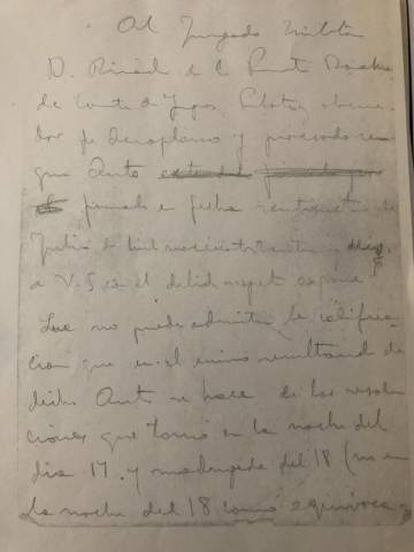 Al Juzgado Militar
D. Ricardo de la Puente Bahamonde
de Cuatro
dor de Aeroplano y procesado
que Auto
firmado en fecha veintiquatro de
Julio de mil novecientos treinta y seis,
a V.S. con el debido respeto expone
Que no puede admitir la califica-
cion que en el resultando de
dicho Auto se hace de las resolu-
ciones que tomó en la noche del
dia 17 y madrugada del 18 (no en
la noche del 18 como equivoca-